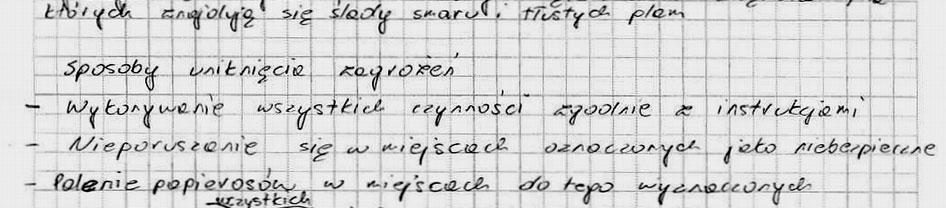 których znajdują się ślady smaru i tłustych plam
sposoby uniknięcia zagrożeń
- Wykonywanie wszystkich czynności zgodnie z instrukcjami
- Nieporuszanie się w miejscach oznaczonych jako niebezpieczne
- Palenie papierosów w miejscach do tego wyznaczonych
wszystkich